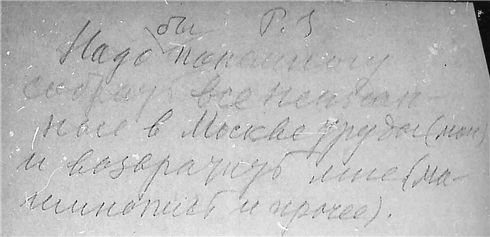 P. S
Надо бы понемногу
собрать все неиздан-
ные в Москве труды (мои)
и возвратить мне (ма-
шинопись и прочее).